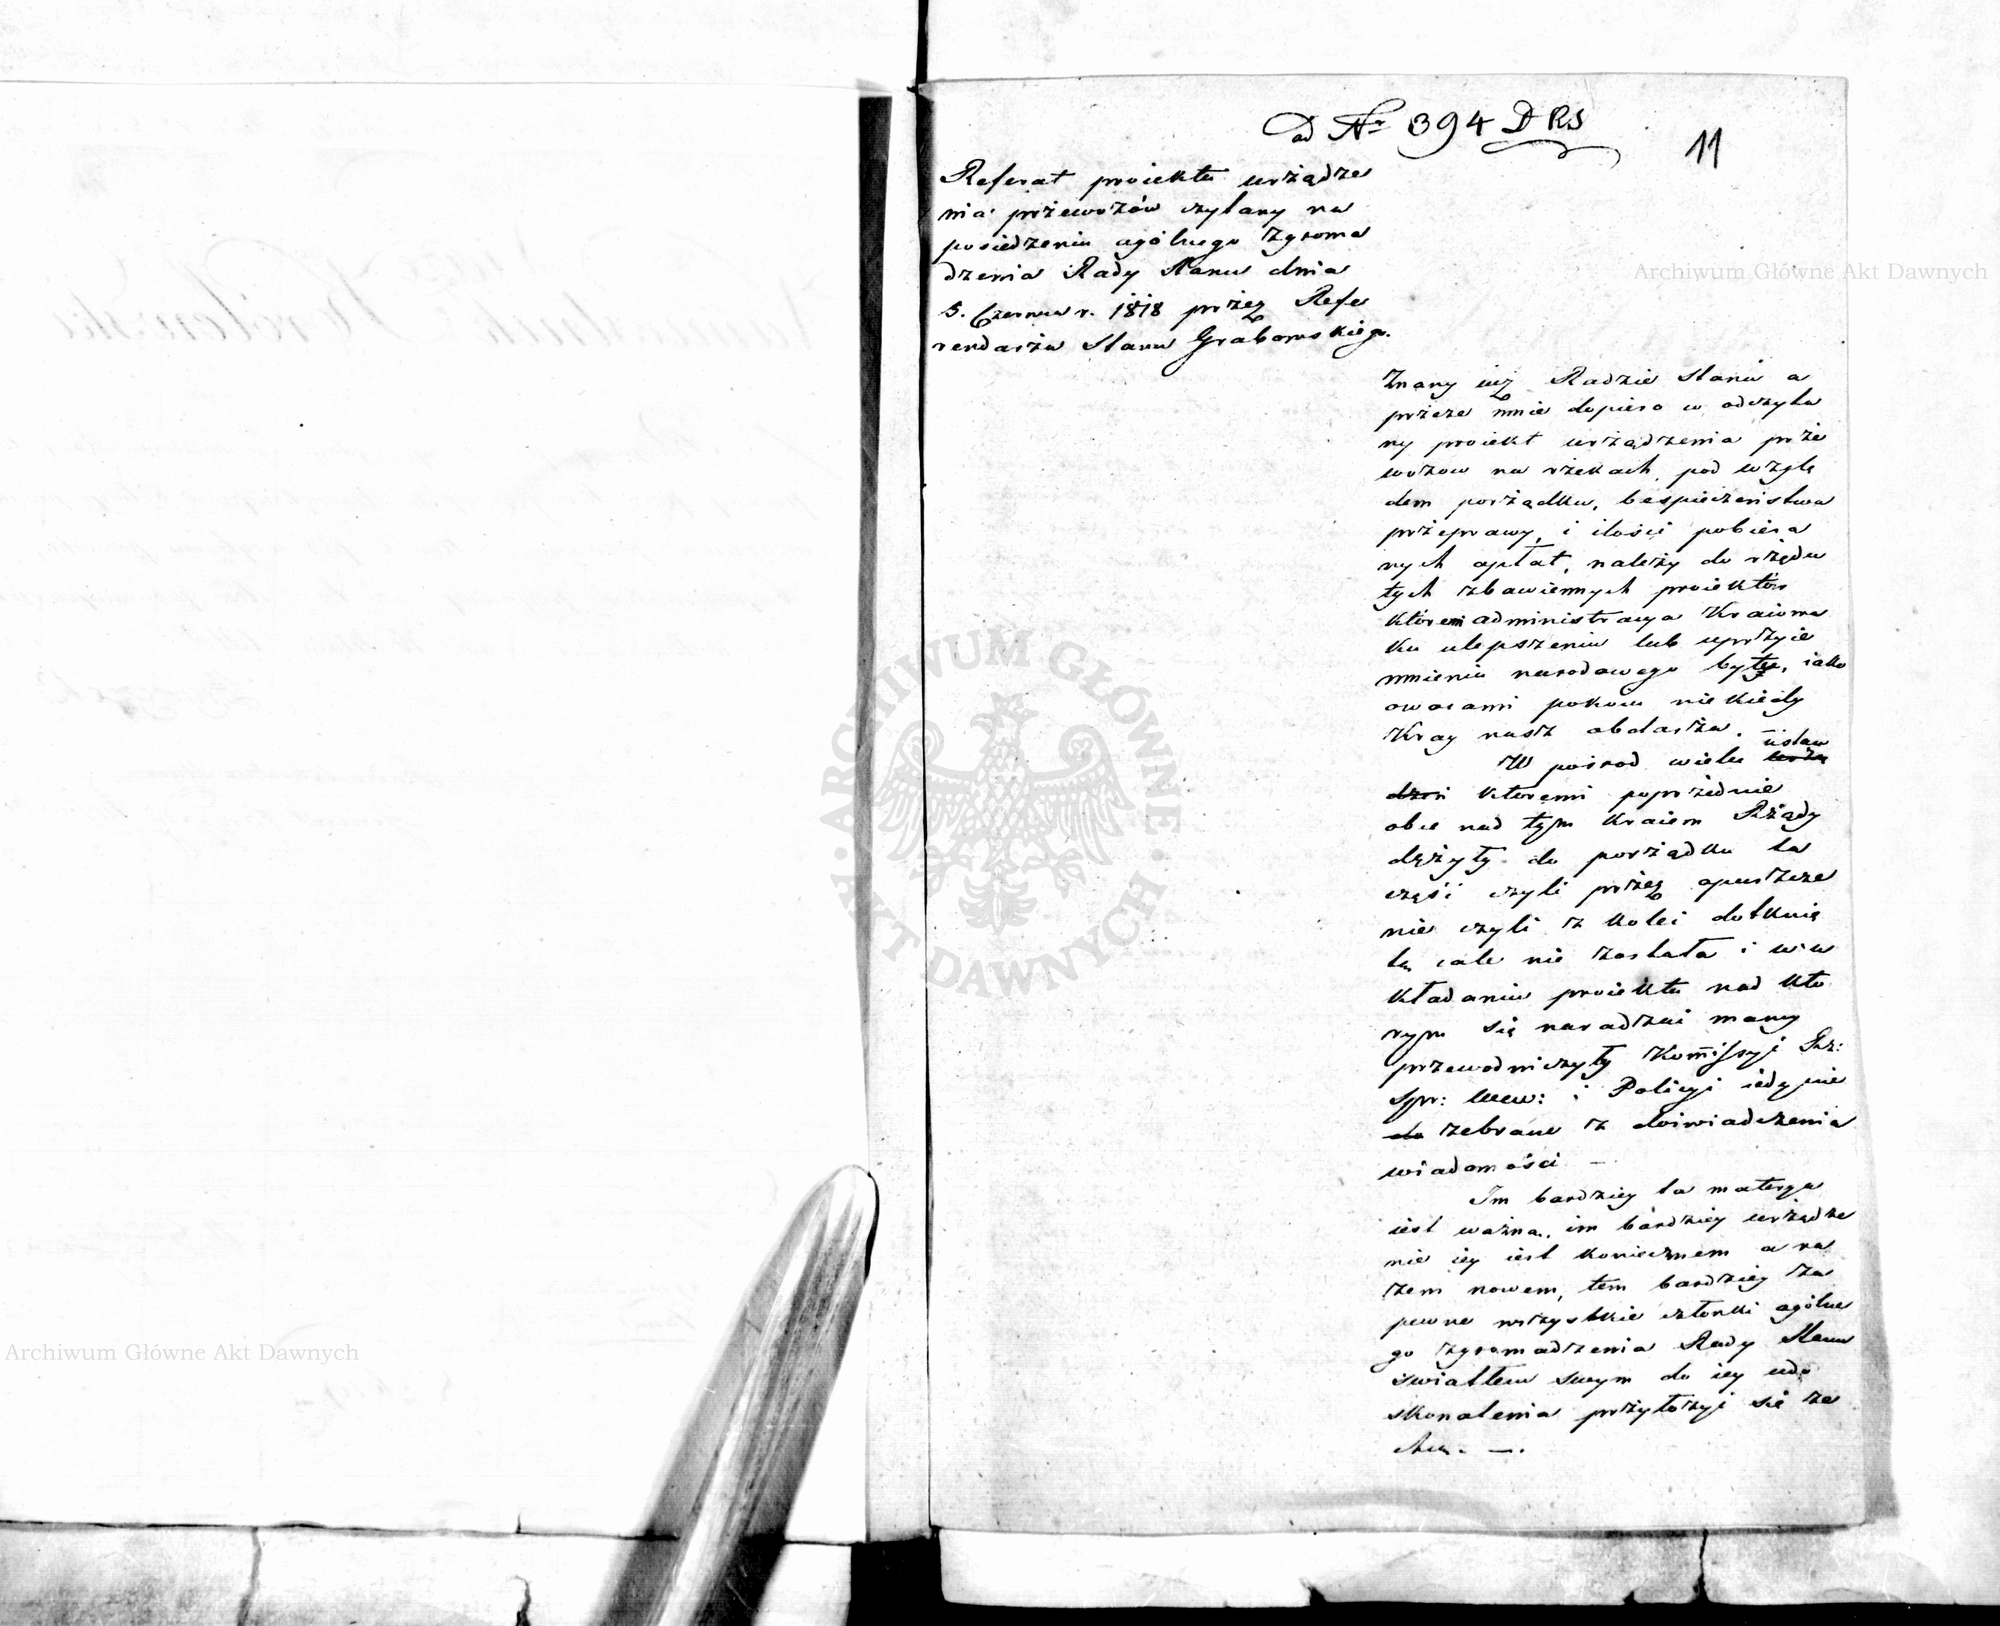 ad Nr 394 D RS
11
Referat proiektu urżądze
nia przewozów czytany na
posiedzeniu ogólnego Zgroma
dzenia Rady Stanu dnia
5. Czerwca r. 1818 przez Refe
rendarza Stanu Grabowskiego.
Znany iuż Radzie Stanu a
przeze mnie dopiero w odczyta
ny proiekt urządzenia prze
wozow na rzekach, pod wzglę
dem porządku, bespieczeństwa
przeprawy, i ilości pobiera
nych opłat, należy do rzędu
tych zbawiennych proiektów
któremi administracya Kraiowa
ku ulepszeniu lub uprzyie
mnieniu narodowego bytu, iako
owocami pokoiu niekiedy
Kray nasz obdarza.
W pośrod wielu ustaw
któremi poprzednie
obce nad tym Kraiem Rządy
dążyły do porządku ta
część czyli przez opuszcze
nie czyli z kolei dotknię
ta cale nie została i w u
kładaniu proiektu nad któ
rym się naradzać mamy
przewodniczyły Kommissyi Rz:
Spr: Wew: i Policyi iedynie
zebrane z doświadczenia
wiadomości —
Im bardziey ta materya
iest ważna, im bardziey urządze
nie iey iest koniecznem a ra
zem nowem, tem bardziey za
pewne wszystkie członki ogólne
go zgromadzenia Rady Stanu
światłem swym do iey udo
skonalenia przyłożyć się ze
chcą. —.
Archiwum Główne Akt Dawnych
Archiwum Główne Akt Dawnych
ARCHIWUM GŁÓWNE • AKT DAWNYCH •